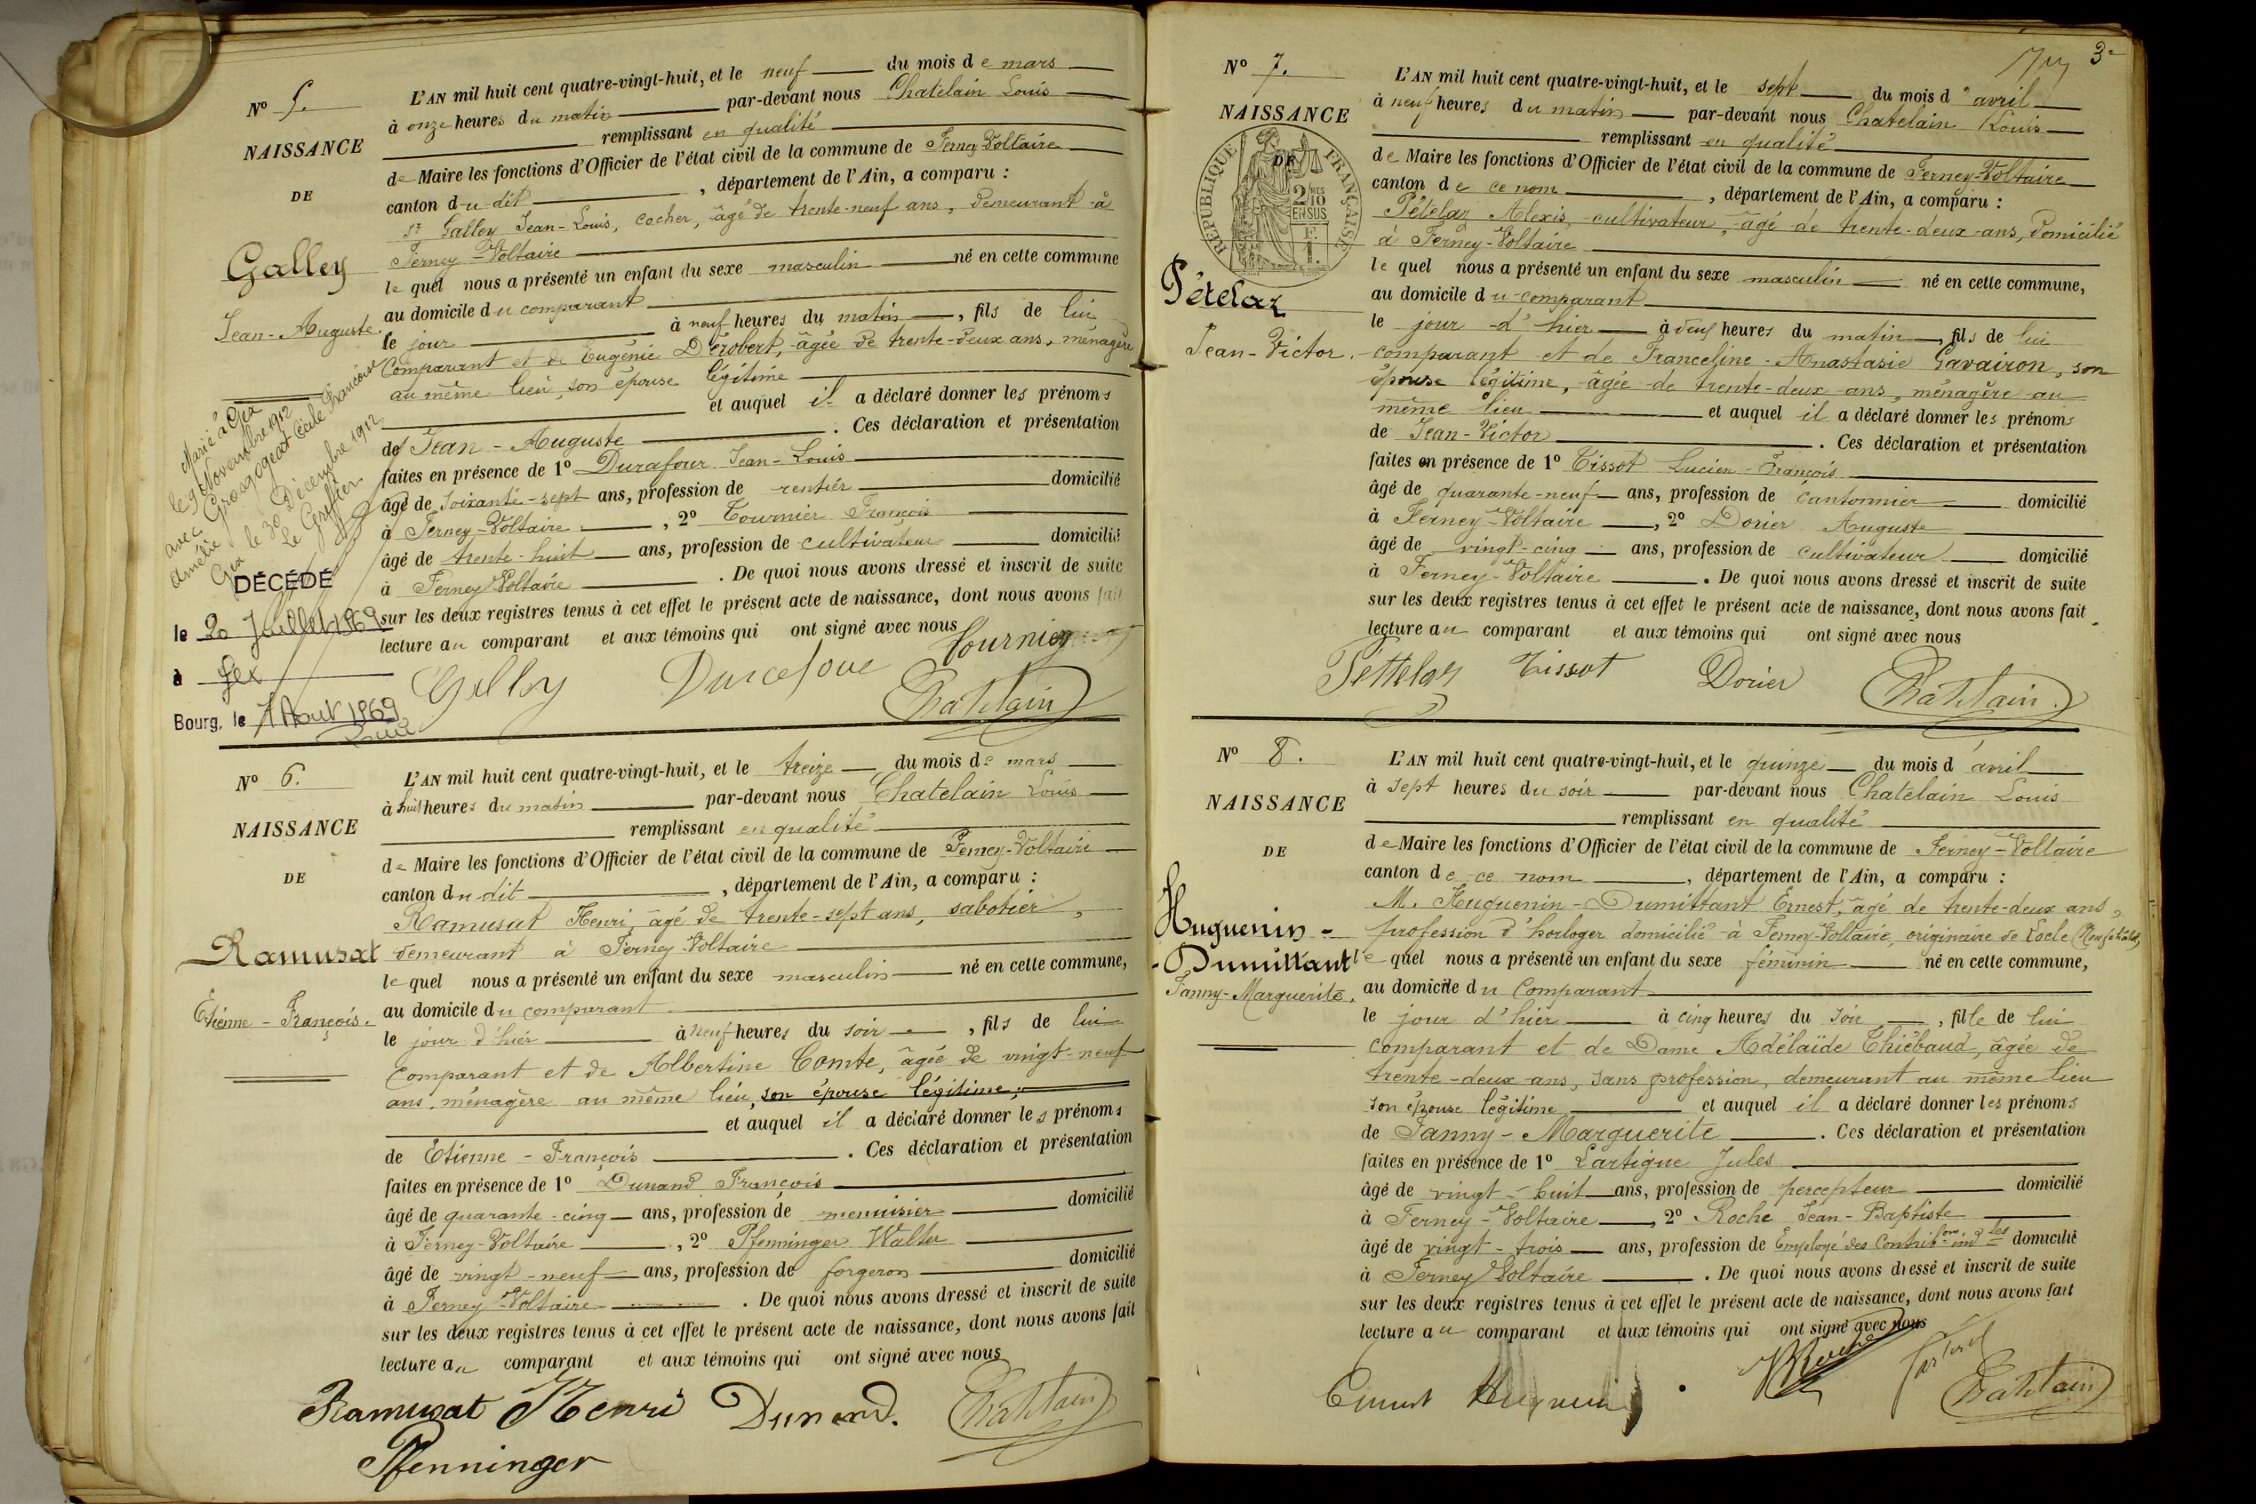 N° 5.
NAISSANCE
DE
Galley
Jean-Auguste.
Marié à Gex
le 9 Novembre 1912
avec Grosgogeat Cécile Françoise
Amélie
Gex le 30 Décembre 1912
Le Greffier
DÉCÉDÉ
le 20 Juillet 1969
à Gex
Bourg, le 7 Août 1969
L'AN mil huit cent quatre-vingt-huit, et le neuf du mois de mars
à onze heures du matin par-devant nous Chatelain Louis
remplissant en qualité
de Maire les fonctions d'Officier de l'état civil de la commune de Ferney-Voltaire
canton du dit , département de l'Ain, a comparu :
Sr Galley Jean-Louis, cocher, âgé de trente-neuf ans, demeurant à
Ferney-Voltaire
le quel nous a présenté un enfant du sexe masculin né en cette commune
au domicile du comparant
le jour à neuf heures du matin , fils de lui
comparant et de Eugénie Dérobert, âgée de trente-deux ans, ménagère
au même lieu, son épouse légitime
et auquel il a déclaré donner les prénoms
de Jean-Auguste . Ces déclaration et présentation
faites en présence de 1° Durafour Jean-Louis
âgé de soixante-sept ans, profession de rentier domicilié
à Ferney-Voltaire , 2° Tournier François
âgé de trente-huit ans, profession de cultivateur domicilié
à Ferney-Voltaire . De quoi nous avons dressé et inscrit de suite
sur les deux registres tenus à cet effet le présent acte de naissance, dont nous avons fait
lecture au comparant et aux témoins qui ont signé avec nous
Tournier
Galley Durafour
Chatelain
N° 6.
NAISSANCE
DE
Ramusat
Etienne-François.
L'AN mil huit cent quatre-vingt-huit, et le treize du mois de mars
à huit heures du matin par-devant nous Chatelain Louis
remplissant en qualité
de Maire les fonctions d'Officier de l'état civil de la commune de Ferney-Voltaire
canton du dit , département de l'Ain, a comparu :
Ramusat Henri, âgé de trente-sept ans, sabotier,
demeurant à Ferney-Voltaire
le quel nous a présenté un enfant du sexe masculin né en cette commune,
au domicile du comparant
le jour d'hier à neuf heures du soir , fils de lui
comparant et de Albertine Comte, âgée de vingt-neuf
ans, ménagère au même lieu, son épouse légitime,
et auquel il a déclaré donner les prénoms
de Etienne-François . Ces déclaration et présentation
faites en présence de 1° Dunand François
âgé de quarante-cinq ans, profession de menuisier domicilié
à Ferney-Voltaire , 2° Pfenninger Walter
âgé de vingt-neuf ans, profession de forgeron domicilié
à Ferney-Voltaire . De quoi nous avons dressé et inscrit de suite
sur les deux registres tenus à cet effet le présent acte de naissance, dont nous avons fait
lecture au comparant et aux témoins qui ont signé avec nous
Ramusat Henri Dunand. Chatelain
Pfenninger
3e
N° 7.
NAISSANCE
DE
RÉPUBLIQUE FRANÇAISE
2/10 EN SUS
Pételaz
Jean-Victor.
L'AN mil huit cent quatre-vingt-huit, et le sept du mois d'avril
à neuf heures du matin par-devant nous Chatelain Louis
remplissant en qualité
de Maire les fonctions d'Officier de l'état civil de la commune de Ferney-Voltaire
canton de ce nom , département de l'Ain, a comparu :
Pételaz Alexis, cultivateur, âgé de trente-deux ans, domicilié
à Ferney-Voltaire
le quel nous a présenté un enfant du sexe masculin né en cette commune,
au domicile du comparant
le jour d'hier à neuf heures du matin , fils de lui
comparant et de Franceline-Anastasie Gavairon, son
épouse légitime, âgée de trente-deux ans, ménagère au
même lieu et auquel il a déclaré donner les prénoms
de Jean-Victor . Ces déclaration et présentation
faites en présence de 1° Tissot Lucien-François
âgé de quarante-neuf ans, profession de cantonnier domicilié
à Ferney-Voltaire , 2° Dorier Auguste
âgé de vingt-cinq ans, profession de cultivateur domicilié
à Ferney-Voltaire . De quoi nous avons dressé et inscrit de suite
sur les deux registres tenus à cet effet le présent acte de naissance, dont nous avons fait
lecture au comparant et aux témoins qui ont signé avec nous
Pettelaz Tissot Dorier Chatelain
N° 8.
NAISSANCE
DE
Huguenin-
Dumittant
Fanny-Marguerite.
L'AN mil huit cent quatre-vingt-huit, et le quinze du mois d'avril
à sept heures du soir par-devant nous Chatelain Louis
remplissant en qualité
de Maire les fonctions d'Officier de l'état civil de la commune de Ferney-Voltaire
canton de ce nom , département de l'Ain, a comparu :
M. Huguenin-Dumittant Ernest, âgé de trente-deux ans,
profession d'horloger domicilié à Ferney-Voltaire, originaire de Locle (Neufchâtel)
le quel nous a présenté un enfant du sexe féminin né en cette commune,
au domicile du Comparant
le jour d'hier à cinq heures du soir , fille de lui
comparant et de Dame Adélaïde Thiébaud, âgée de
trente-deux ans, sans profession, demeurant au même lieu
son épouse légitime et auquel il a déclaré donner les prénoms
de Fanny-Marguerite . Ces déclaration et présentation
faites en présence de 1° Lartigue Jules
âgé de vingt-huit ans, profession de percepteur domicilié
à Ferney-Voltaire , 2° Roche Jean-Baptiste
âgé de vingt-trois ans, profession de Employé des Contribons indtes domicilié
à Ferney-Voltaire . De quoi nous avons dressé et inscrit de suite
sur les deux registres tenus à cet effet le présent acte de naissance, dont nous avons fait
lecture au comparant et aux témoins qui ont signé avec nous
Ernest Huguenin Roche Chatelain